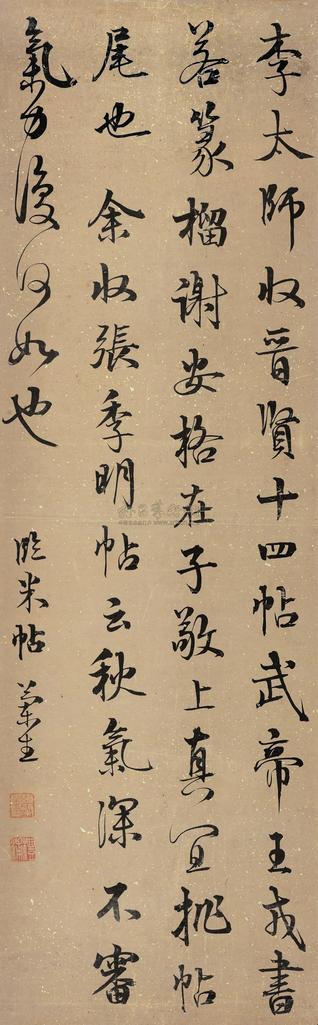 李太師收晉賢十四帖武帝王戎書
若篆榴謝安格在子敬上真宜批帖
尾也 余收張季明帖云秋氣深不審
氣力復何如也
臨米帖